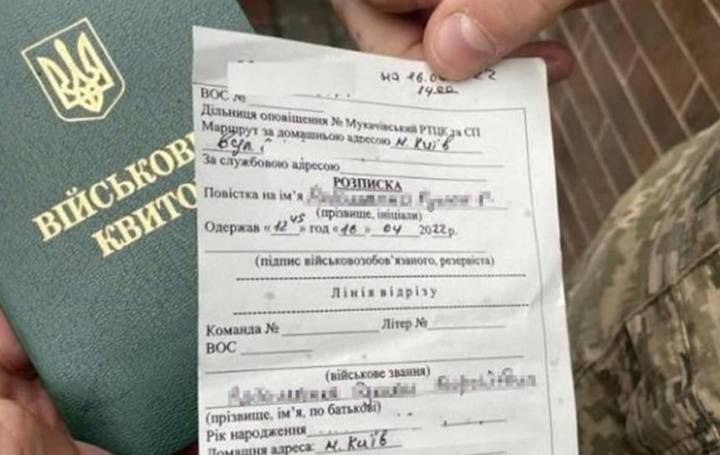 ВІЙСЬКОВ
КВИТО
на 16.0
14.00
ВОС №
Дільниця оповіщення № Мукачівський РТЦК та СП
Маршрут за домашньою адресою м. Київ
За службовою адресою
РОЗПИСКА
Повістка на ім'я
(прізвище, ініціали)
Одержав «12 45» год «16» 04 2022р.
(підпис військовозобов'язаного, резервіста)
Лінія відрізу
Команда № Літер №
ВОС
(військове звання)
(прізвище, ім'я, по батькові)
Рік народження
Домашня адреса: м. Київ